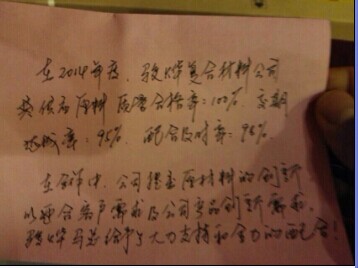 在2014年度,骏烨复合材料公司
提供原材料 质量合格率:100%,交期
达成率:95%,配合及时率:98%
在全年中,公司提出原材料的创新
以配合客户需求及公司产品创新需求,
骏烨马总给予了大力支持和全力的配合!